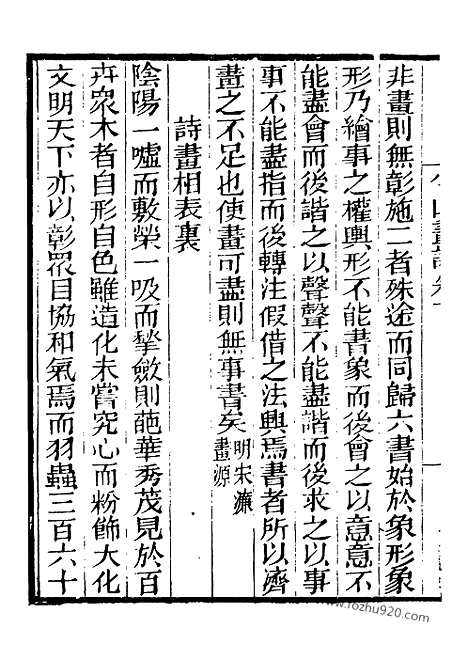 非畫則無彰施二者殊途而同歸六書始於象形象
形乃繪事之權輿形不能書象而後會之以意意不
能盡會而後諧之以聲聲不能盡諧而後求之以事
事不能盡指而後轉注假借之法興焉書者所以濟
畫之不足也使畫可盡則無事書矣明宋濂畫源
詩畫相表裏
陰陽一噓而敷榮一吸而揫斂則葩華秀茂見於百
卉眾木者自形自色雖造化未嘗究心而粉飾大化
文明天下亦以彰眾目協和氣焉而羽蟲三百六十
www.fozhu920.com